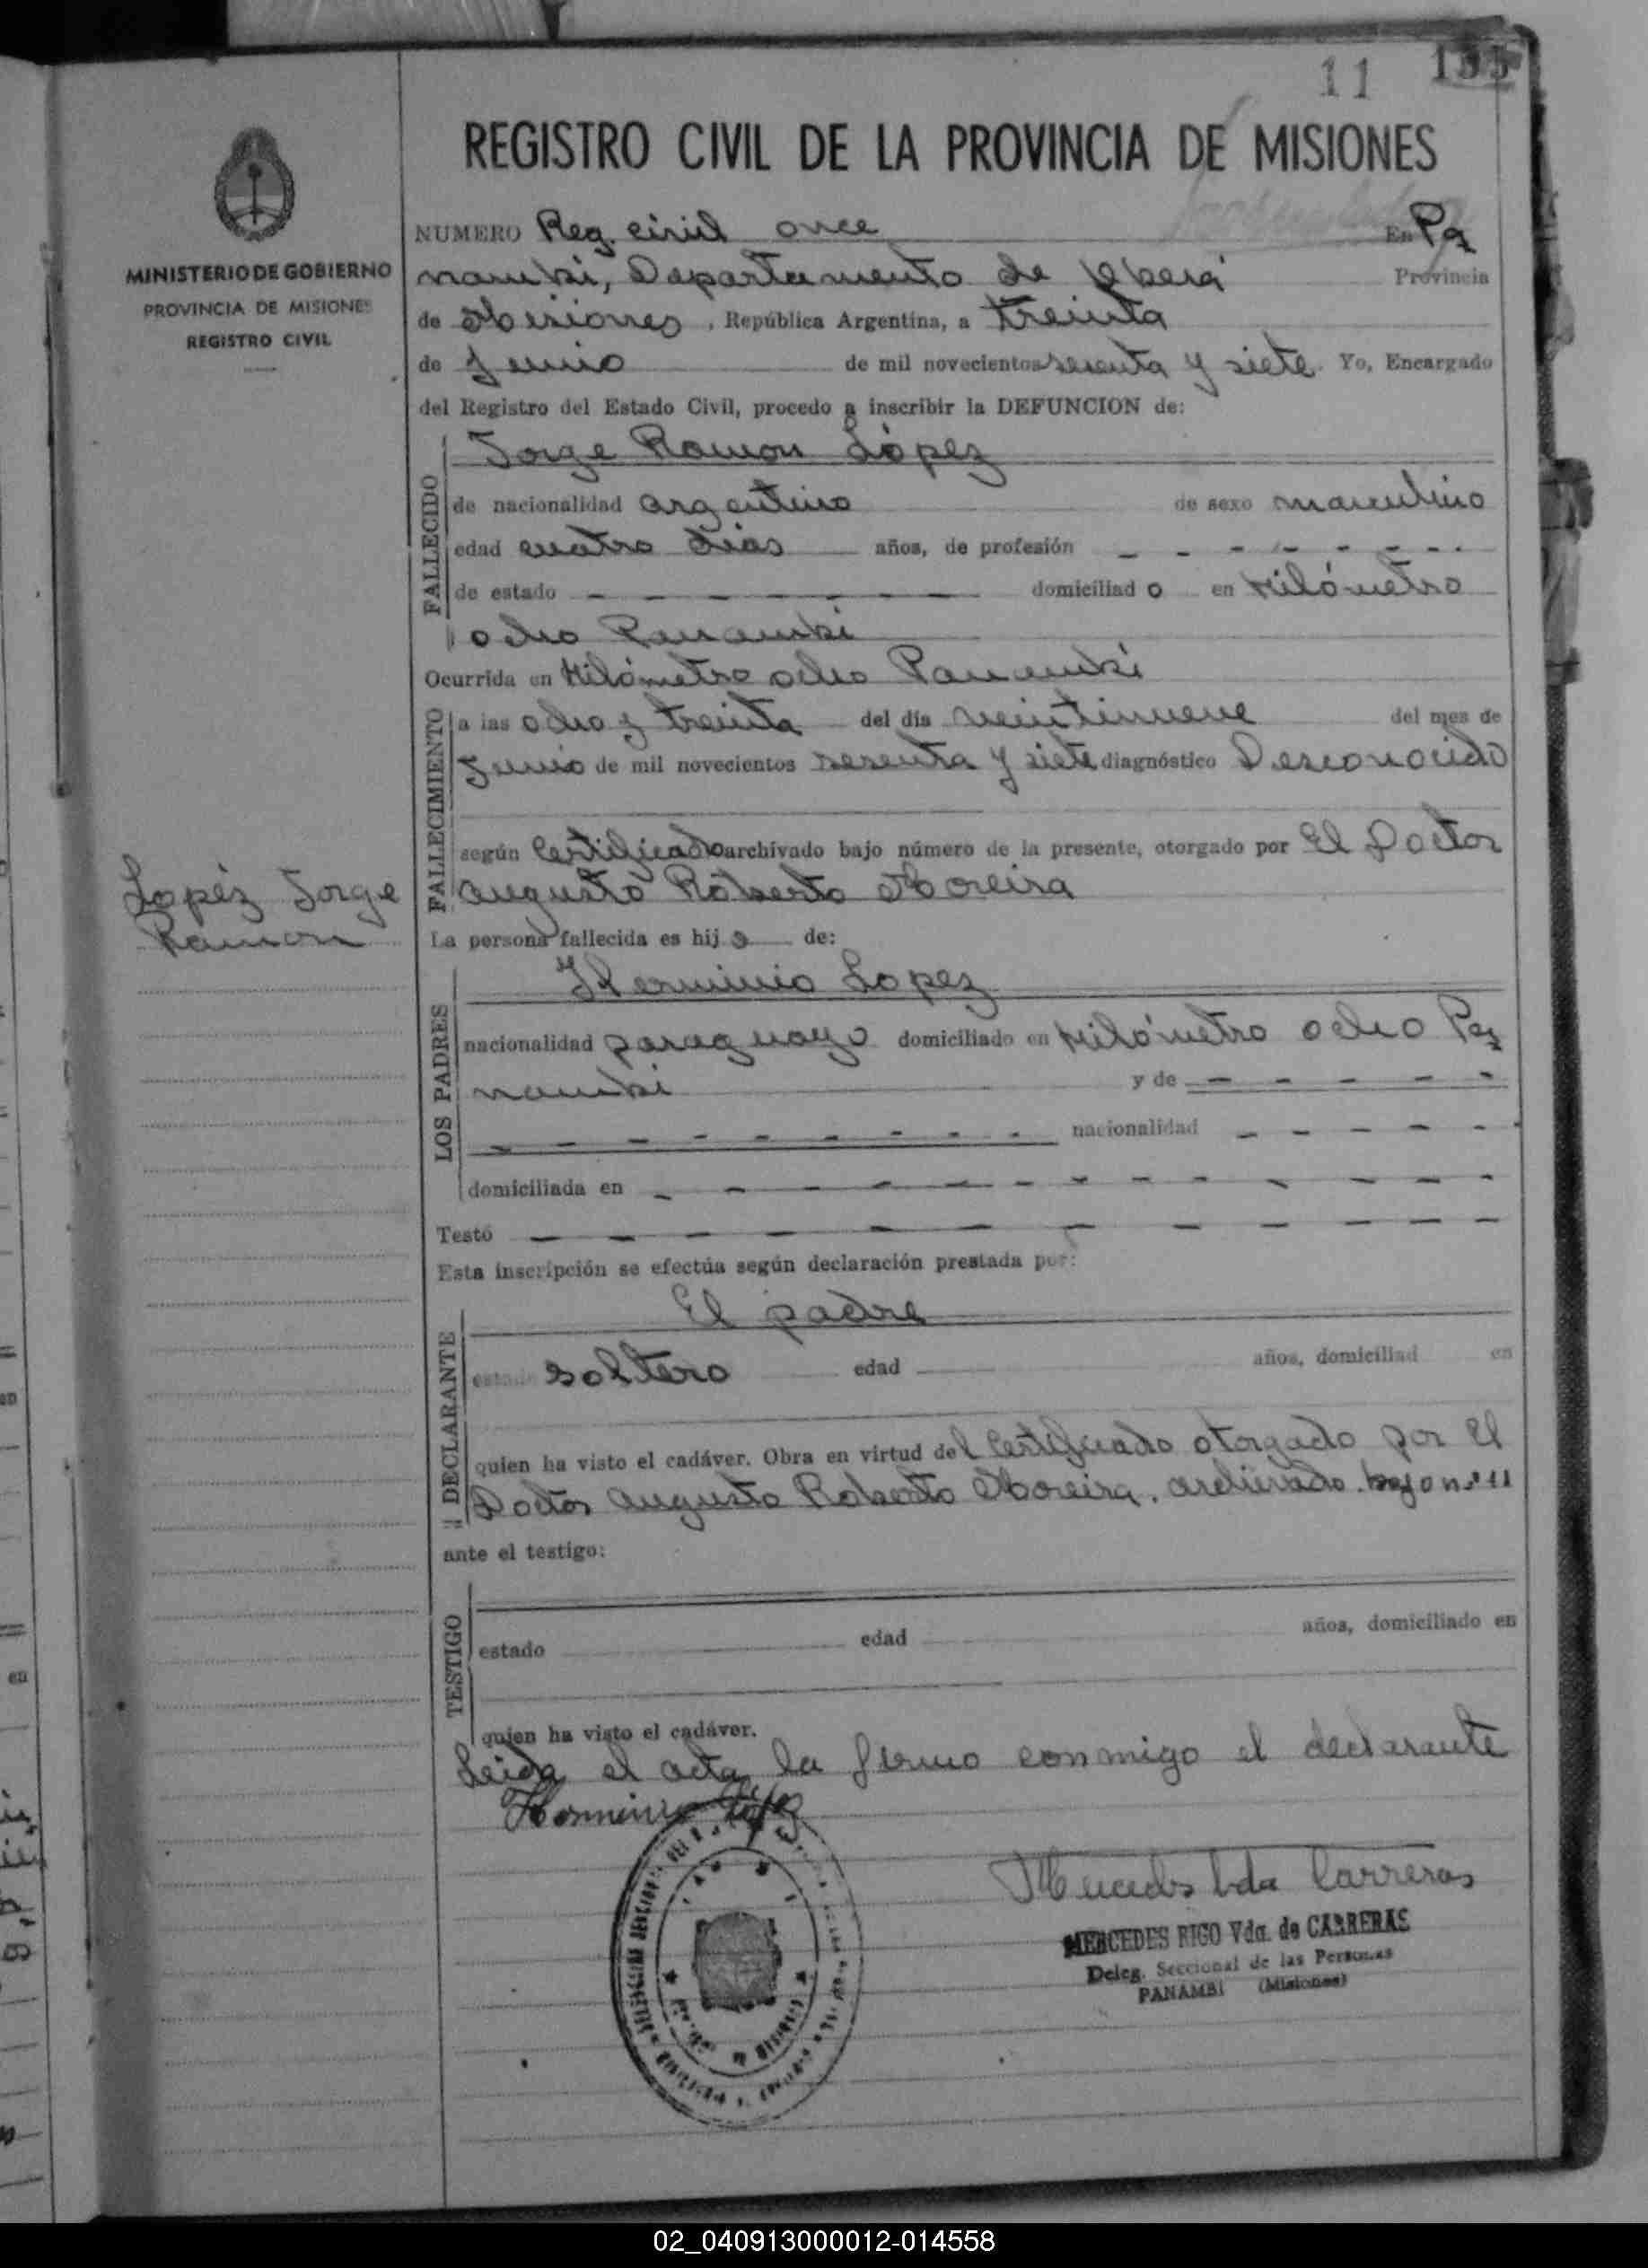 11 155
REGISTRO CIVIL DE LA PROVINCIA DE MISIONES
MINISTERIO DE GOBIERNO
PROVINCIA DE MISIONES
REGISTRO CIVIL
NUMERO Reg. civil once En Pa
nambi, Departamento de Oberá Provincia
de Misiones, República Argentina, a treinta
de Junio de mil novecientos sesenta y siete. Yo, Encargado
del Registro del Estado Civil, procedo a inscribir la DEFUNCION de:
FALLECIDO
Jorge Ramon López
de nacionalidad argentino de sexo masculino
edad cuatro dias años, de profesión - - - - - - - -
de estado - - - - - - - domiciliad o en Kilómetro
ocho Panambi
Ocurrida en Kilómetro ocho Panambi
FALLECIMIENTO
a las ocho y treinta del día veintinueve del mes de
Junio de mil novecientos sesenta y siete diagnóstico Desconocido
según Certificado archivado bajo número de la presente, otorgado por El Doctor
Augusto Roberto Moreira
Lopéz Jorge
Ramon
La persona fallecida es hij o de:
LOS PADRES
Herminio Lopez
nacionalidad paraguayo domiciliado en Kilómetro ocho Pa
nambi y de - - - - -
- - - - - - - - - nacionalidad - - - - -
domiciliada en - - - - - - - - - - - -
Testó - - - - - - - - - - - -
Esta inscripción se efectúa según declaración prestada por:
DECLARANTE
El padre
estado soltero edad años, domiciliad en
quien ha visto el cadáver. Obra en virtud del Certificado otorgado por El
Doctor Augusto Roberto Moreira. archivado bajo nº 11
ante el testigo:
TESTIGO
estado edad años, domiciliado en
quien ha visto el cadáver.
Leida el acta la firmo conmigo el declarante
Herminio López
Mercedes Vda Carreras
MERCEDES RIGO Vda. de CARRERAS
Deleg. Seccional de las Personas
PANAMBI (Misiones)
02_040913000012-014558